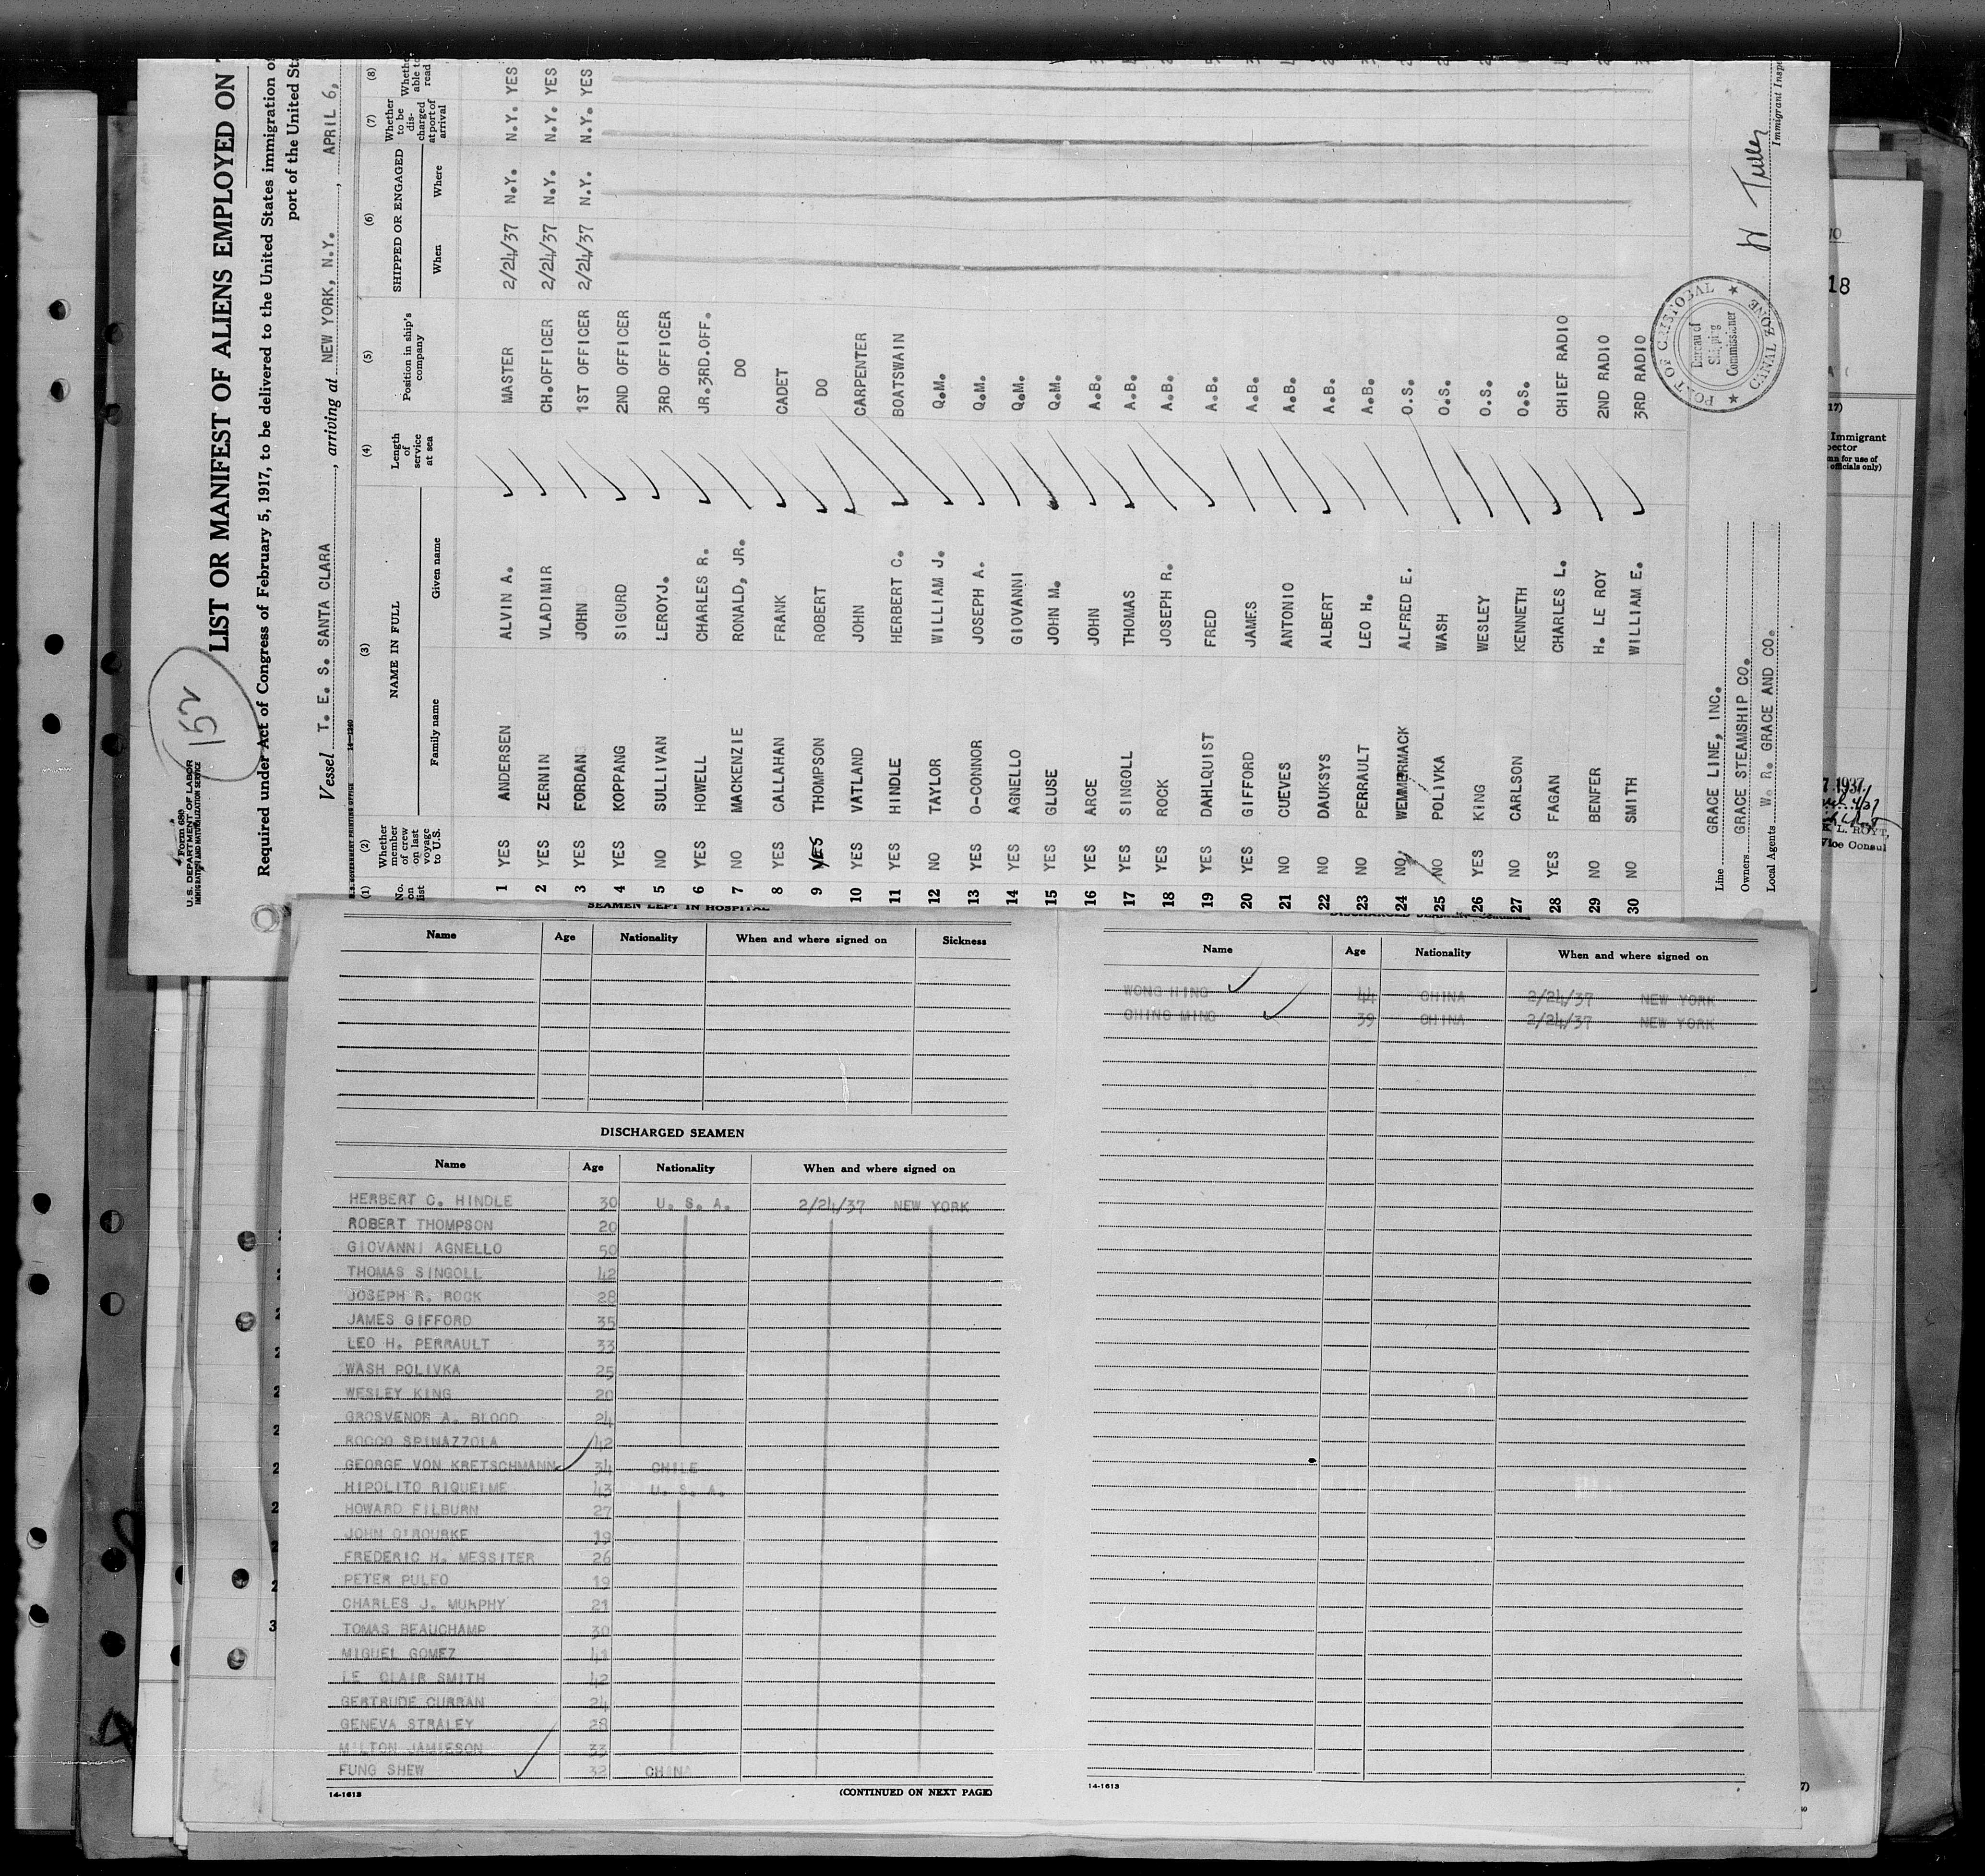 Form 680
U. S. DEPARTMENT OF LABOR
IMMIGRATION AND NATURALIZATION SERVICE
152
LIST OR MANIFEST OF ALIENS EMPLOYED ON
Required under Act of Congress of February 5, 1917, to be delivered to the United States immigration
port of the United
Vessel T. E. S. SANTA CLARA, arriving at NEW YORK, N.Y., APRIL 6,
U.S. GOVERNMENT PRINTING OFFICE
(1) (2) (3) (4) (5) (6) (7) (8)
No. on list Whether member of crew on last voyage to U.S. NAME IN FULL Length of service at sea Position in ship's company SHIPPED OR ENGAGED Whether to be discharged at port of arrival Whether able to read
Family name Given name When Where
1 YES ANDERSEN ALVIN A. MASTER 2/24/37 N.Y. N.Y. YES
2 YES ZERNIN VLADIMIR CH.OFFICER 2/24/37 N.Y. N.Y. YES
3 YES FORDAN JOHN 1ST OFFICER 2/24/37 N.Y. N.Y. YES
4 YES KOPPANG SIGURD 2ND OFFICER
5 NO SULLIVAN LEROYJ. 3RD OFFICER
6 YES HOWELL CHARLES R. JR.3RD.OFF.
7 NO MACKENZIE RONALD, JR. DO
8 YES CALLAHAN FRANK CADET
9 YES THOMPSON ROBERT DO
10 YES VATLAND JOHN CARPENTER
11 YES HINDLE HERBERT C. BOATSWAIN
12 NO TAYLOR WILLIAM J. Q.M.
13 YES O-CONNOR JOSEPH A. Q.M.
14 YES AGNELLO GIOVANNI Q.M.
15 YES GLUSE JOHN M. Q.M.
16 YES ARCE JOHN A.B.
17 YES SINGOLL THOMAS A.B.
18 YES ROCK JOSEPH R. A.B.
19 YES DAHLQUIST FRED A.B.
20 YES GIFFORD JAMES A.B.
21 NO CUEVES ANTONIO A.B.
22 NO DAUKSYS ALBERT A.B.
23 NO PERRAULT LEO H. A.B.
24 NO ALFRED E. O.S.
25 NO POLIVKA WASH O.S.
26 YES KING WESLEY O.S.
27 NO CARLSON KENNETH O.S.
28 YES FAGAN CHARLES L. CHIEF RADIO
29 NO BENFER H. LE ROY 2ND RADIO
30 NO SMITH WILLIAM E. 3RD RADIO
Line GRACE LINE, INC.
Owners GRACE STEAMSHIP CO.
Local Agents W. R. GRACE AND CO.
PORT OF CRISTOBAL ★ CANAL ZONE ★
Bureau of Shipping Commissioner
Immigrant
18
Immigrant
officials only)
1937
Vice Consul
SEAMEN LEFT IN HOSPITAL
Name Age Nationality When and where signed on Sickness
DISCHARGED SEAMEN
Name Age Nationality When and where signed on
HERBERT C. HINDLE 30 U. S. A. 2/24/37 NEW YORK
ROBERT THOMPSON 20
GIOVANNI AGNELLO 50
THOMAS SINGOLL 42
JOSEPH R. ROCK 28
JAMES GIFFORD 35
LEO H. PERRAULT 33
WASH POLIVKA 25
WESLEY KING 20
GROSVENOR A. BLOOD 24
ROCCO SPINAZZOLA 42
GEORGE VON KRETSCHMANN 34 CHILE
HIPOLITO RIQUELME 43 U. S. A.
HOWARD FILBURN 27
JOHN O'ROURKE 19
FREDERIC H. MESSITER 26
PETER PULEO 19
CHARLES J. MURPHY 21
TOMAS BEAUCHAMP 30
MIGUEL GOMEZ 41
LE CLAIR SMITH 42
GERTRUDE CURRAN 24
GENEVA STRALEY 28
MILTON JAMIESON 33
FUNG SHEW 32 CHINA
14-1613
(CONTINUED ON NEXT PAGE)
Name Age Nationality When and where signed on
WONG HING 44 CHINA 2/24/37 NEW YORK
CHING MING 39 CHINA 2/24/37 NEW YORK
14-1613